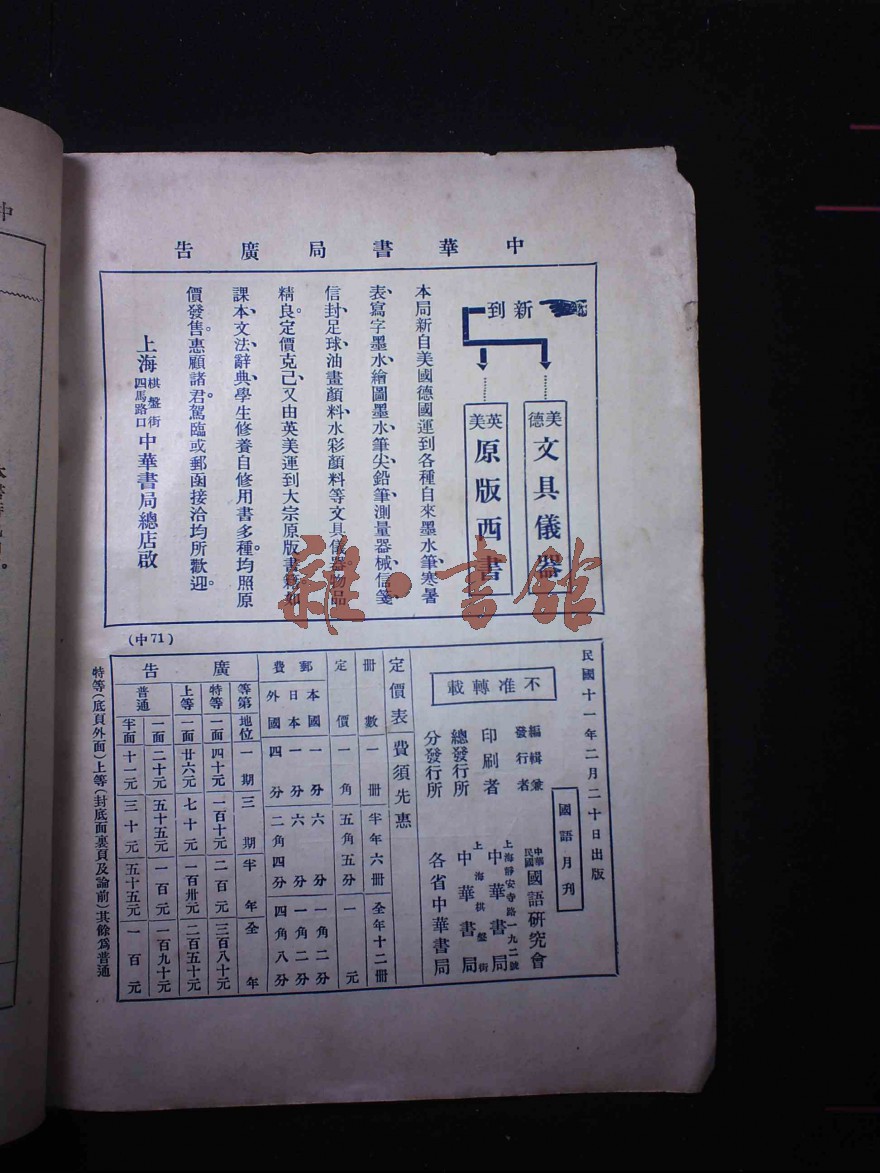 中華書局廣告
新到
美德文具儀器
英美原版西書
本局新自美國德國運到各種自來墨水筆寒暑
表、寫字墨水、繪圖墨水、筆尖、鉛筆、測量器械、信箋、
信封、足球、油畫顏料、水彩顏料等文具儀器物品
精良。定價克己、又由英美運到大宗原版書籍如
課本、文法、辭典、學生修養自修用書多種。均照原
價發售。惠顧諸君。駕臨或郵函接洽均所歡迎。
上海棋盤街四馬路口中華書局總店啟
(中71)
民國十一年二月二十日出版
國語月刊
不准轉載
編輯兼發行者 中華民國國語研究會
印刷者 上海靜安寺路一九二號中華書局
總發行所 上海棋盤街中華書局
分發行所 各省中華書局
定價表 費須先惠
冊數 一冊 半年六冊 全年十二冊
定價 一角 五角五分 一元
郵費 本國 一分 六分 一角二分
日本 一分 六分 一角二分
外國 四分 二角四分 四角八分
廣告
等第 地位 一期 三期 半年 全年
特等 一面 四十元 一百十元 二百元 三百八十元
上等 一面 廿六元 七十元 一百卅元 二百五十元
普通 一面 二十元 五十五元 一百元 一百九十元
半面 十一元 三十元 五十五元 一百元
特等(底頁外面)上等(封底面裏頁及論前)其餘爲普通
雜·書館
中